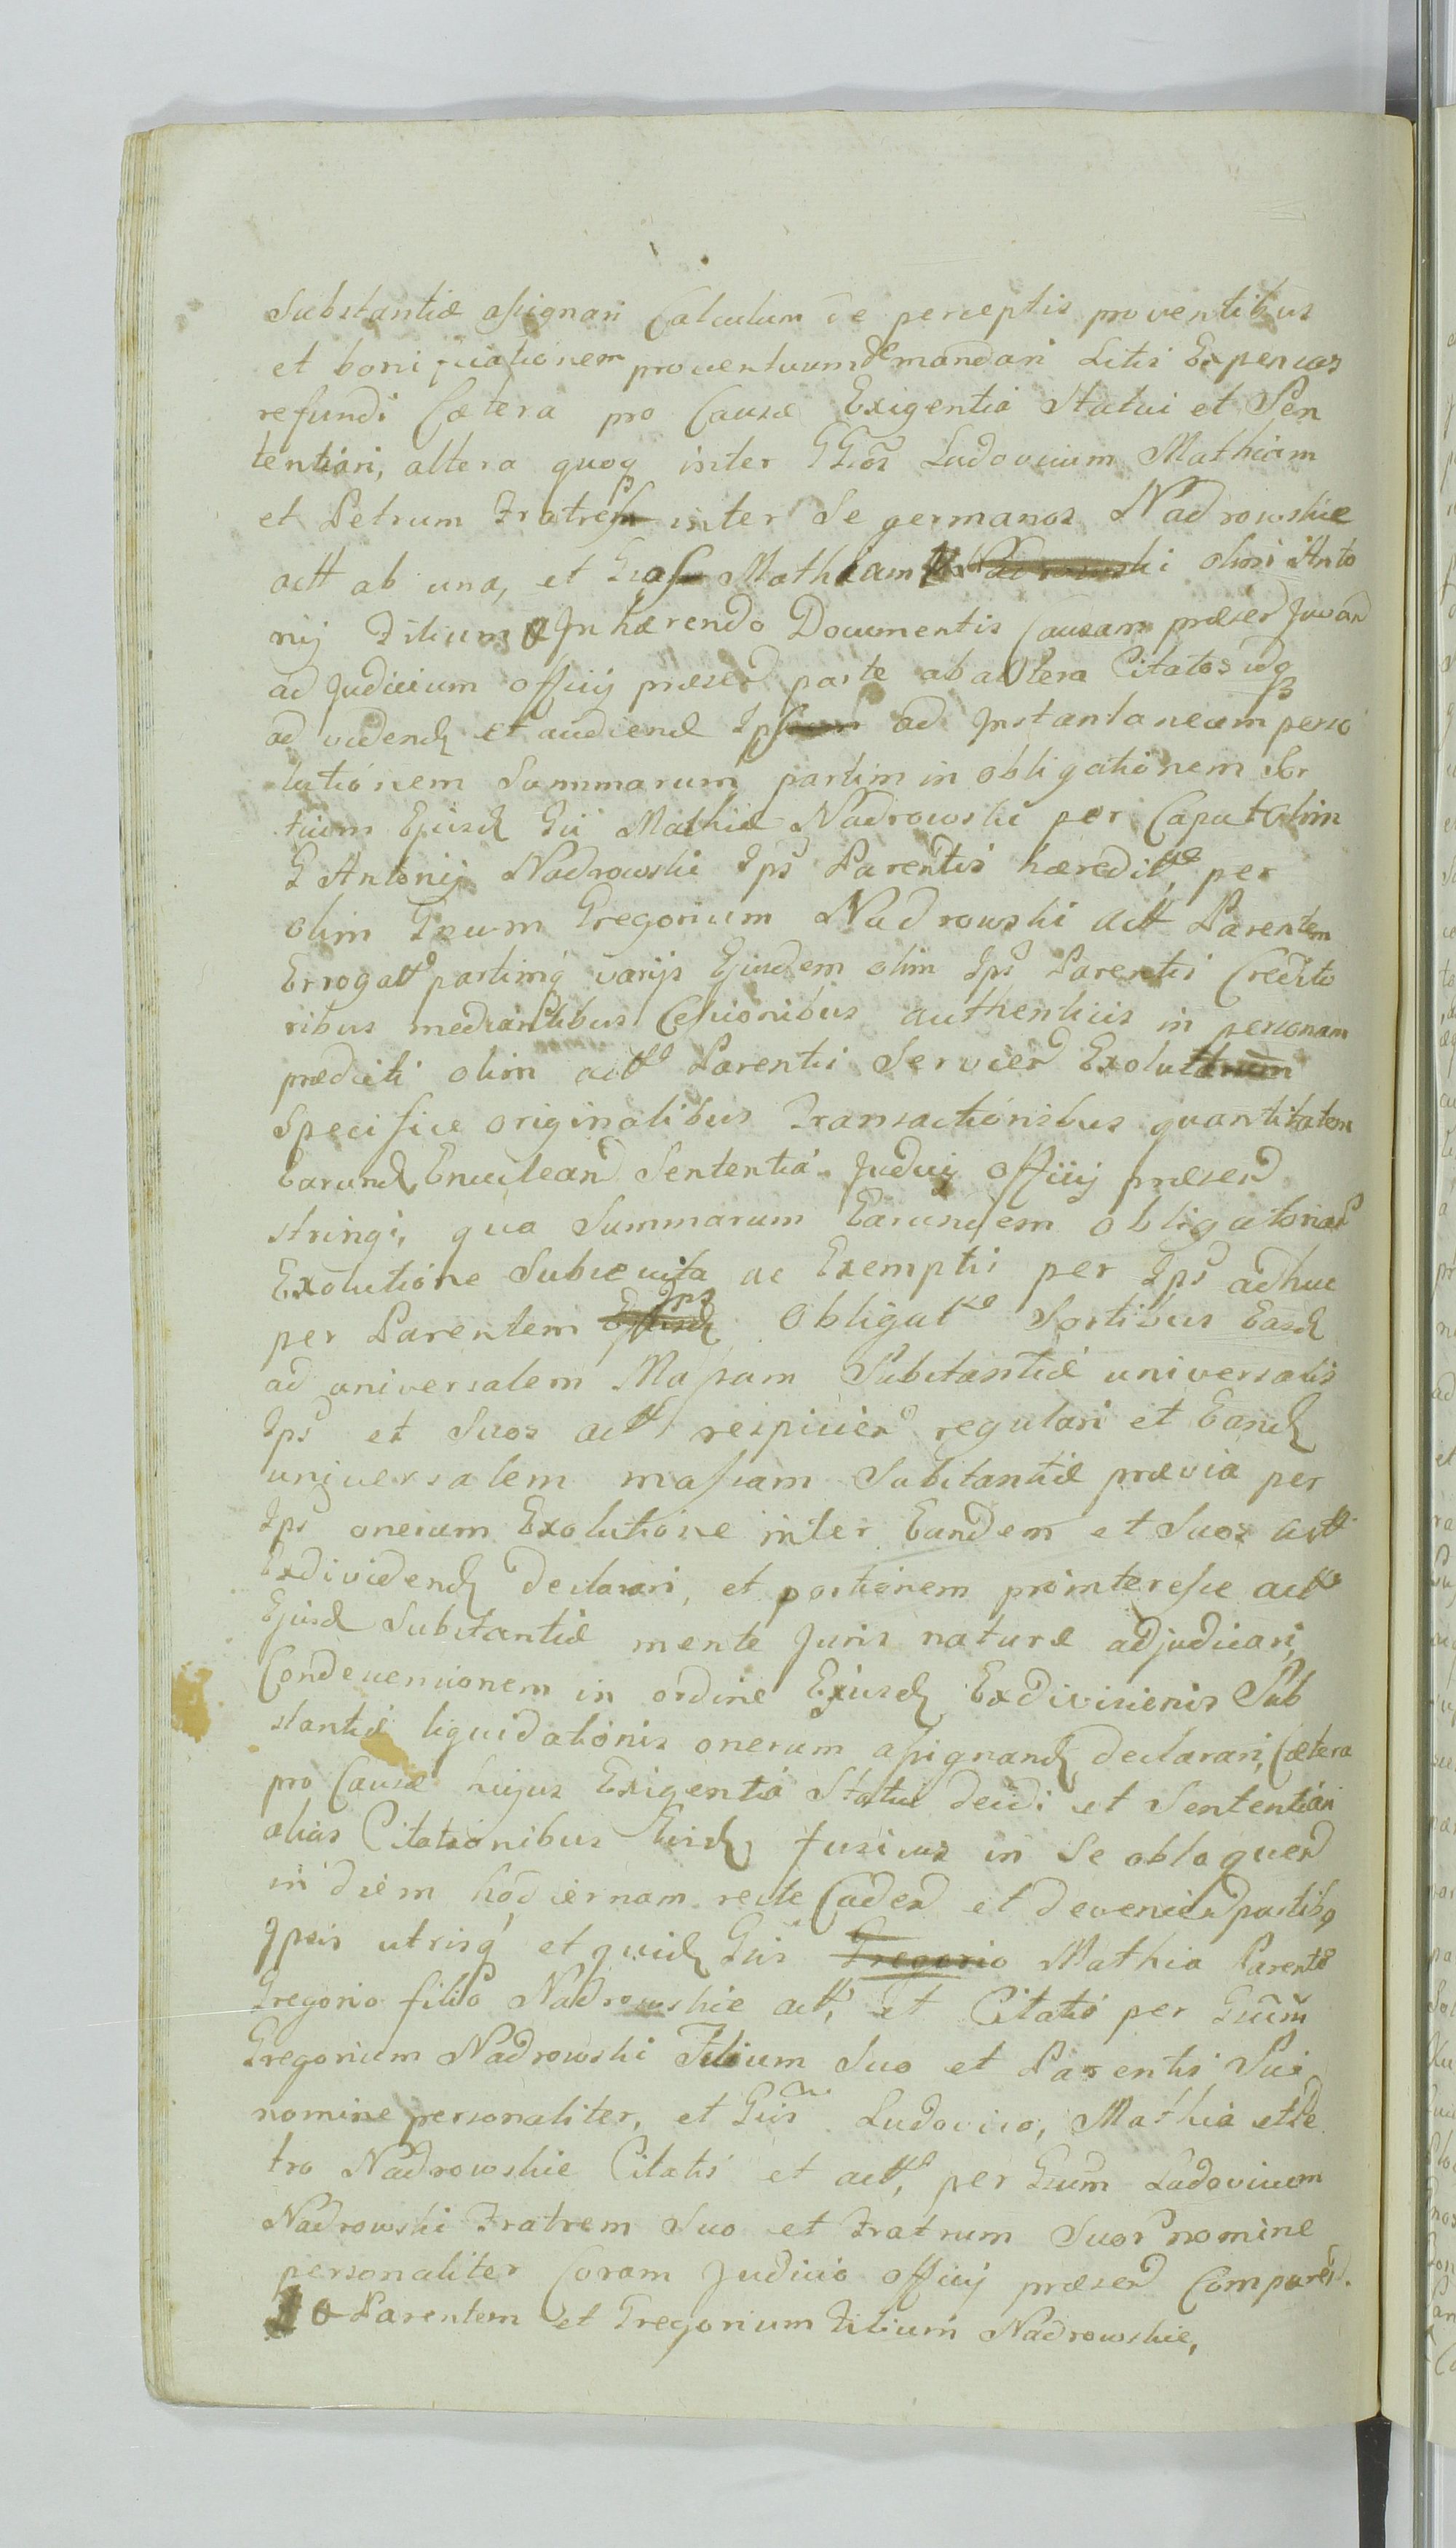 Substantiæ assignari Calculum de perceptis proventibus
et bonificationem proventuum demandari Litis Expensas
refundi Cætera pro Causæ Exigentia Statui et Sen
tentiari, altera quoq inter GGros Ludovicum Mathiam
et Petrum Fratres inter Se germanos Nadrowskie
actt ab una, et Gros Mathiam Nadrowski olim Anto
nij Filium Inhærendo Documentis Causam præsed Juvan
ad Judicium officij præsed parte ab altera Citatos idq
ad videnđ et audiend Ips ad Instantaneam perso
lutionem Summarum partim in obligationem Sor
tium Ejusd Gsi Mathiæ Nadrowski per Caput olim
G Antonij Nadrowski Ips Parentis hæredittæ per
olim Gsum Gregorium Nadrowski actt Parentem
Errogatt partimq varijs Ejusdem olim Ips Parentis Credito
ribus mediantibus Cessionibus authenticis in personam
prædicti olim actt Parentis Serviend Exolutarum
Specifice originalibus Transactionibus quantitatem
Earund Enuclean Sententia Judicij officij præsed
stringi, qua Summarum Earundem obligatoriar
Exolutione Subsecuta ac Exemptis per Ips adhuc
per Parentem Ejusd Ips Obligat Sortibus Easd
ad universalem Massam Substantiæ universalis
Ips et Suos actt respicien regulari et Eand
universalem massam Substantiæ prævia per
Ips onerum Exolutione inter Eundem et Suos actt
Exdividend declarari, et portionem pro interesse actt
Ejusd Substantiæ mente Juris naturæ adjudicari,
Condescensionem in ordine Ejusd Exdivisionis Sub
stantiæ liquidationis onerum assignand declarari, Cætera
pro Causæ hujus Exigentia Statui decidi et Sententiari
alias Citationibus Eisd fusius in Se obloquend
in diem hodiernam recte Caden et devenien partibq
Ipsis utrisq et quid Gsis Gregorio Mathia Parente
Gregorio filio Nadrowskie actt, et Citatis per Gsum
Gregorium Nadrowski Filium Suo et Parentis Sui
nomine personaliter, et Gsis Ludovico, Mathia et Pe
tro Nadrowskie Citatis et actt, per Gsum Ludovicum
Nadrowski Fratrem Suo et Fratrum Suor nomine
personaliter Coram Judicio officij præsed Comparen.
Parentem et Gregorium Filium Nadrowskie,